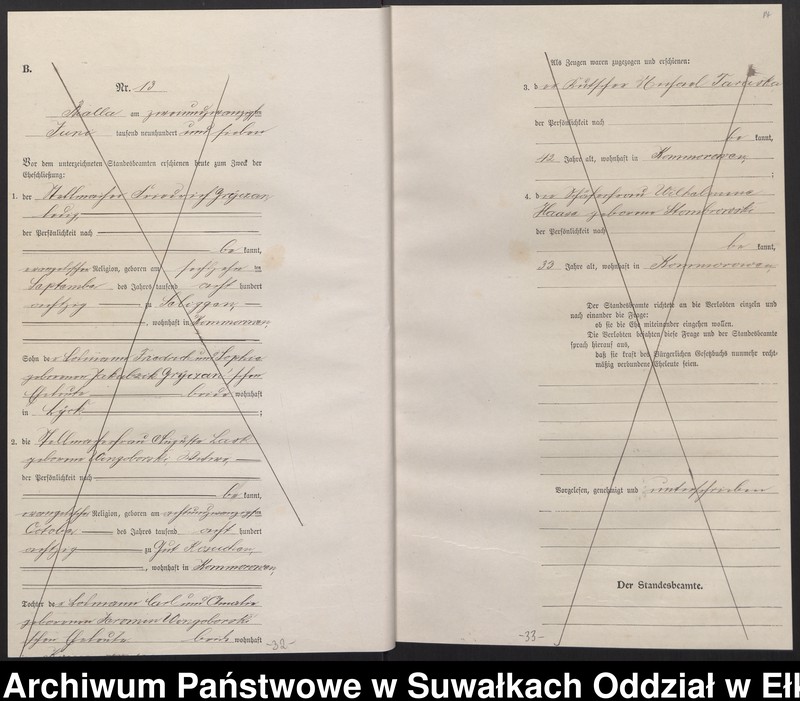 B.
Nr. 13
Skalla am zweiundzwanzigsten
Juni tausend neunhundert und sieben
Vor dem unterzeichneten Standesbeamten erschienen heute zum Zweck der
Eheschließung:
1. der Stellmacher Friedrich Gryczan,
ledig,
der Persönlichkeit nach
be kannt,
evangelischer Religion, geboren am sechszehn ten
September des Jahres tausend acht hundert
achtzig zu
, wohnhaft in Kommorowen,
Sohn de
geborenen Gryczan'schen
Eheleute beide wohnhaft
in Lyck ;
2. die Stellmacherfrau Auguste
geborene Wittwe,
der Persönlichkeit nach
be kannt,
evangelischer Religion, geboren am achtundzwanzigsten
October des Jahres tausend acht hundert
achtzig zu Gut
, wohnhaft in Kommorowen,
Tochter de s Losmann Carl und Amalie
geborenen
schen Eheleute beide wohnhaft
-32-
14
Als Zeugen waren zugezogen und erschienen:
3. d er Kutscher Michael
der Persönlichkeit nach
be kannt,
42 Jahre alt, wohnhaft in Kommorowen,
;
4. d ie Schäferfrau Wilhelmine
Haase geborene
der Persönlichkeit nach
be kannt,
33 Jahre alt, wohnhaft in Kommorowen,
Der Standesbeamte richtete an die Verlobten einzeln und
nach einander die Frage:
ob sie die Ehe miteinander eingehen wollen.
Die Verlobten bejahten diese Frage und der Standesbeamte
sprach hierauf aus,
daß sie kraft des Bürgerlichen Gesetzbuchs nunmehr recht-
mäßig verbundene Eheleute seien.
Vorgelesen, genehmigt und unterschrieben
Der Standesbeamte.
-33-
Archiwum Państwowe w Suwałkach Oddział w Ełk